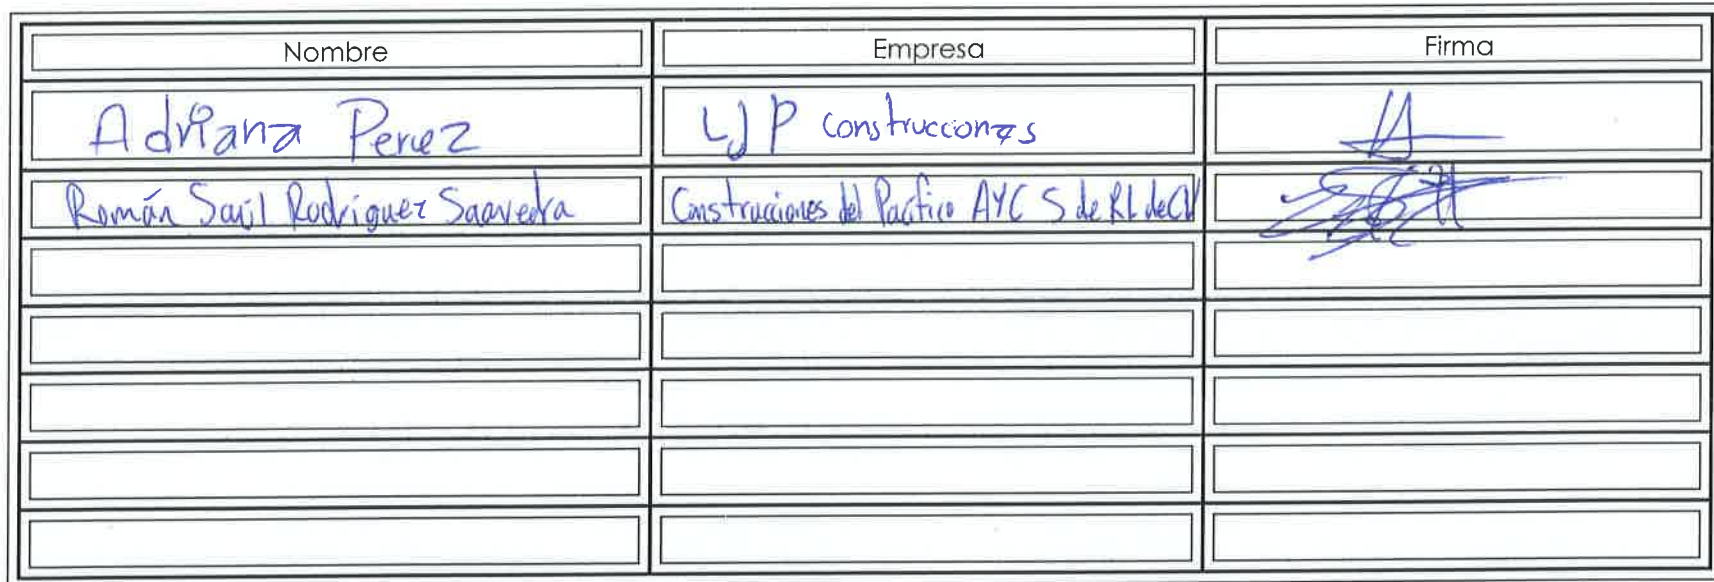 Nombre Empresa Firma
Adriana Perez LJP Construcciones
Román Saúl Rodríguez Saavedra Construcciones del Pacífico AYC S de RL de CV